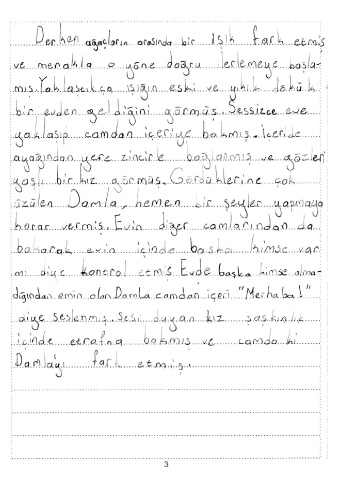 Derken ağaçların arasında bir ışık fark etmiş
ve merakla o yöne doğru ilerlemeye başla-
mış. Yaklaşıkça ışığın eski ve yıkık dökük
bir evden geldiğini görmüş. Sessizce eve
yaklaşıp camdan içeriye bakmış. İçeride
ayağından yere zincirle bağlanmış ve gözleri
yaşlı bir kız görmüş. Gördüklerine çok
üzülen Damla, hemen bir şeyler yapmaya
karar vermiş. Evin diğer camlarından da
bakarak evin içinde başka kimse var
mı diye kontrol etmiş. Evde başka kimse olma-
dığından emin olan Damla camdan içeri "Merhaba!"
diye seslenmiş. Sesi duyan kız şaşkınlık
içinde etrafına bakmış ve camda ki
Damla'yı fark etmiş.
3